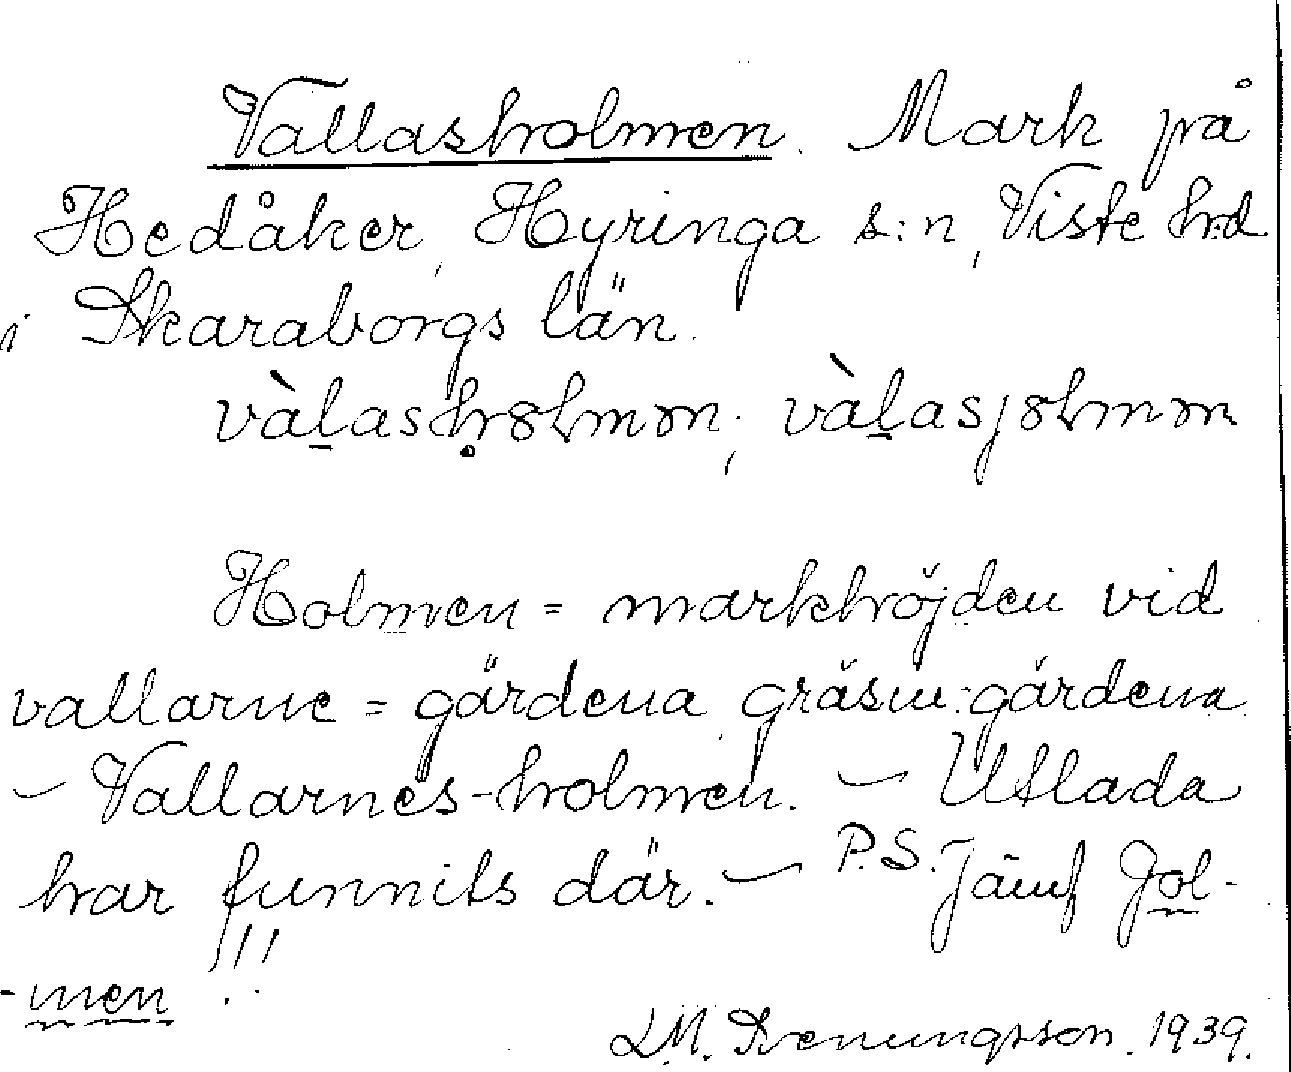 Vallasholmen. Mark på
Hedåker, Hyringa s:n, Viste hd
i Skaraborgs län.
vàlashålmən; vàlasjålmən
Holmen = markhöjden vid
vallarne = gärdena gräsm. gärdena
- Vallarnes-holmen. - Utlada
har funnits där. - P.S. Jämf Jol-
-men !!
LM. Svenungsson. 1939.